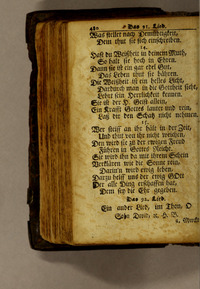 480 Das 91. Lied.
Was stellet nach Demüthigkeit,
Dem thut sie sich einschreiben.
14.
Hast du Weißheit in deinem Muth,
So halt sie hoch in Ehren.
Dann sie ist ein gar edel Gut,
Das Leben thut sie bähren.
Die Weißheit ist ein helles Licht,
Dardurch man in die Gottheit sieht,
Lehrt sein Herrlichkeit kennen.
Sie ist der H. Geist allein,
Ein Krafft Gottes lauter und rein,
Laß dir den Schatz nicht nehmen.
15.
Wer steiff an ihr hält in der Zeit,
Und thut von ihr nicht weichen,
Den wird sie zu der ewigen Freud
Führen in Gottes Reiche.
Sie wird ihn da mit ihrem Schein
Verklären wie die Sonne rein,
Darin'n wird ewig leben.
Darzu helff uns der ewig GOtt
Der alle Ding erschaffen hat,
Dem sey die Ehr gegeben.
Das 92. Lied.
Ein ander Lied, im Thon, O